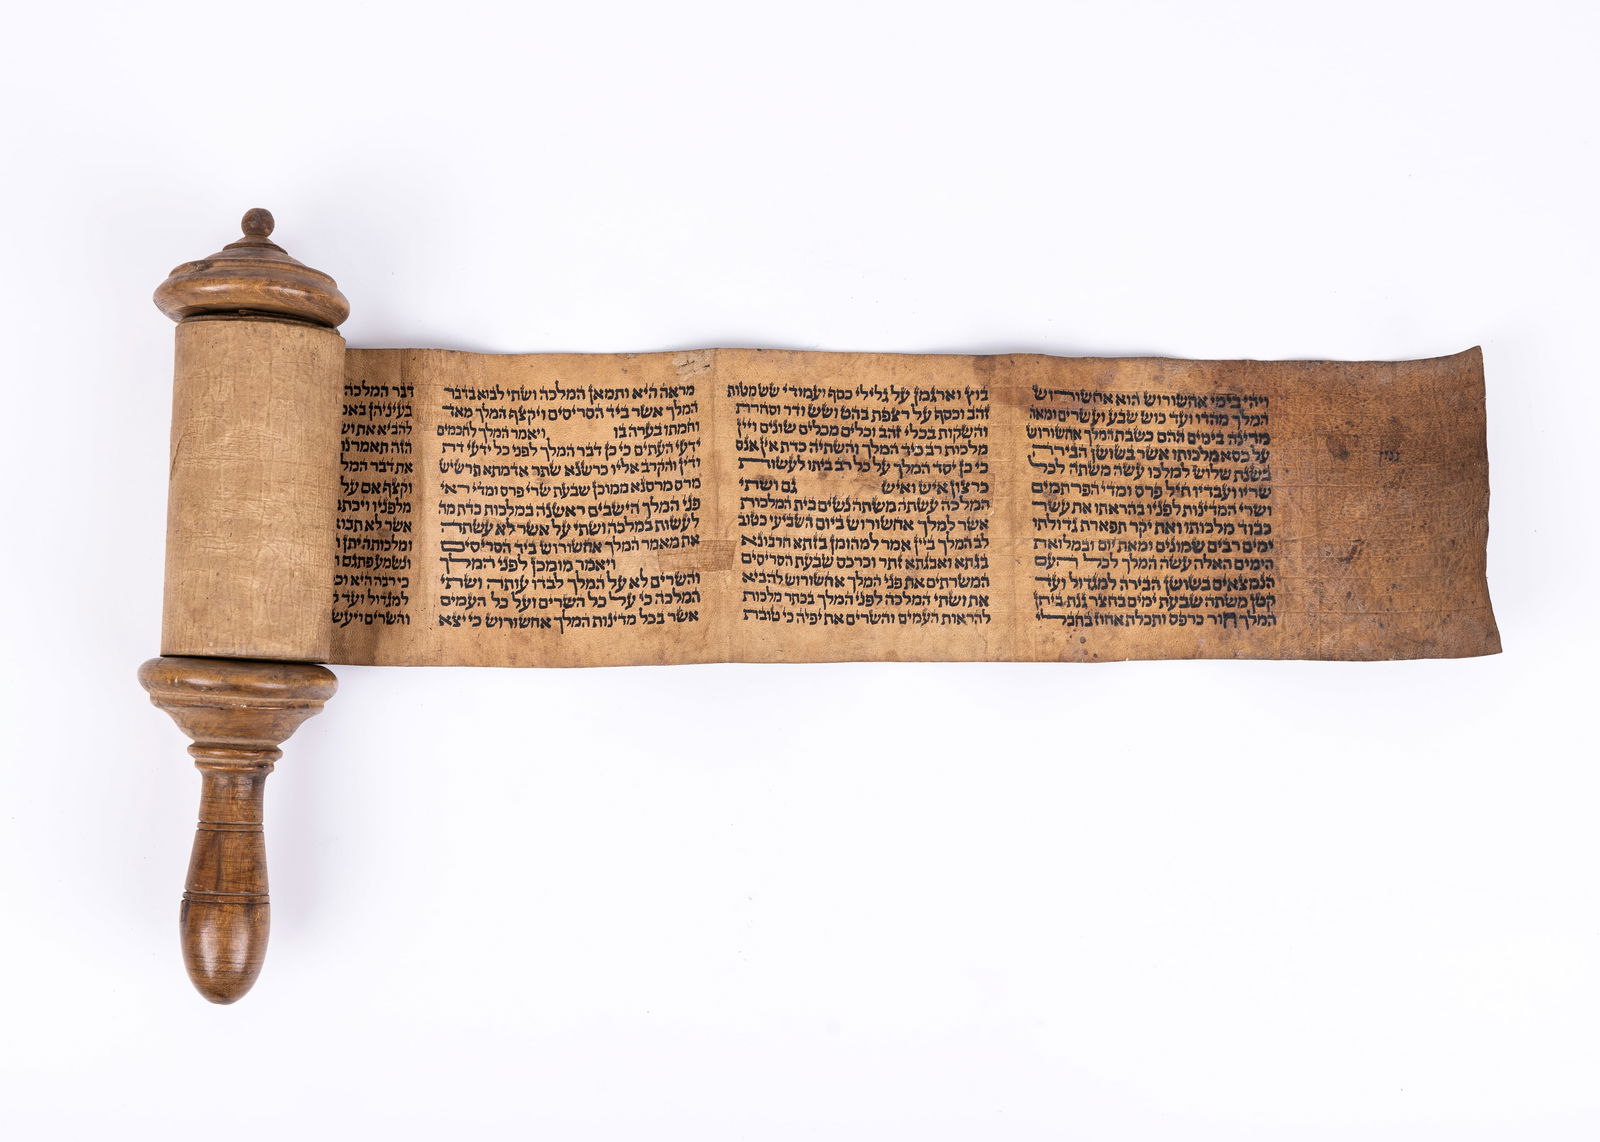 ויהי בימי אחשורוש הוא אחשורוש
המלך מהדו ועד כוש שבע ועשרים ומאה
מדינה בימים ההם כשבת המלך אחשורוש
על כסא מלכותו אשר בשושן הבירה
בשנת שלוש למלכו עשה משתה לכל
שריו ועבדיו חיל פרס ומדי הפרתמים
ושרי המדינות לפניו בהראתו את עשר
כבוד מלכותו ואת יקר תפארת גדולתו
ימים רבים שמונים ומאת יום ובמלואת
הימים האלה עשה המלך לכל העם
הנמצאים בשושן הבירה למגדול ועד
קטן משתה שבעת ימים בחצר גנת ביתן
המלך חור כרפס ותכלת אחוז בחבלי
בוץ וארגמן על גלילי כסף ועמודי שש מטות
זהב וכסף על רצפת בהט ושש ודר וסחרת
והשקות בכלי זהב וכלים מכלים שונים ויין
מלכות רב כיד המלך והשתיה כדת אין אנס
כי כן יסד המלך על כל רב ביתו לעשות
כרצון איש ואיש גם ושתי
המלכה עשתה משתה נשים בית המלכות
אשר למלך אחשורוש ביום השביעי כטוב
לב המלך ביין אמר למהומן בזתא חרבונא
בגתא ואבגתא זתר וכרכס שבעת הסריסים
המשרתים את פני המלך אחשורוש להביא
את ושתי המלכה לפני המלך בכתר מלכות
להראות העמים והשרים את יפיה כי טובת
מראה היא ותמאן המלכה ושתי לבוא בדבר
המלך אשר ביד הסריסים ויקצף המלך מאד
וחמתו בערה בו ויאמר המלך לחכמים
ידעי העתים כי כן דבר המלך לפני כל ידעי דת
ודין והקרב אליו כרשנא שתר אדמתא תרשיש
מרס מרסנא ממוכן שבעת שרי פרס ומדי ראי
פני המלך הישבים ראשנה במלכות כדת מה
לעשות במלכה ושתי על אשר לא עשתה
את מאמר המלך אחשורוש ביד הסריסים
ויאמר מומכן לפני המלך
והשרים לא על המלך לבדו עותה ושתי
המלכה כי על כל השרים ועל כל העמים
אשר בכל מדינות המלך אחשורוש כי יצא
דבר המלכה
בעיניהן
להביא את
הזה
את דבר
וקצף אם על
מלפניו
אשר לא
ומלכותה יתן
ונשמע פתגם
כי רבה היא
למגדול ועד
והשרים